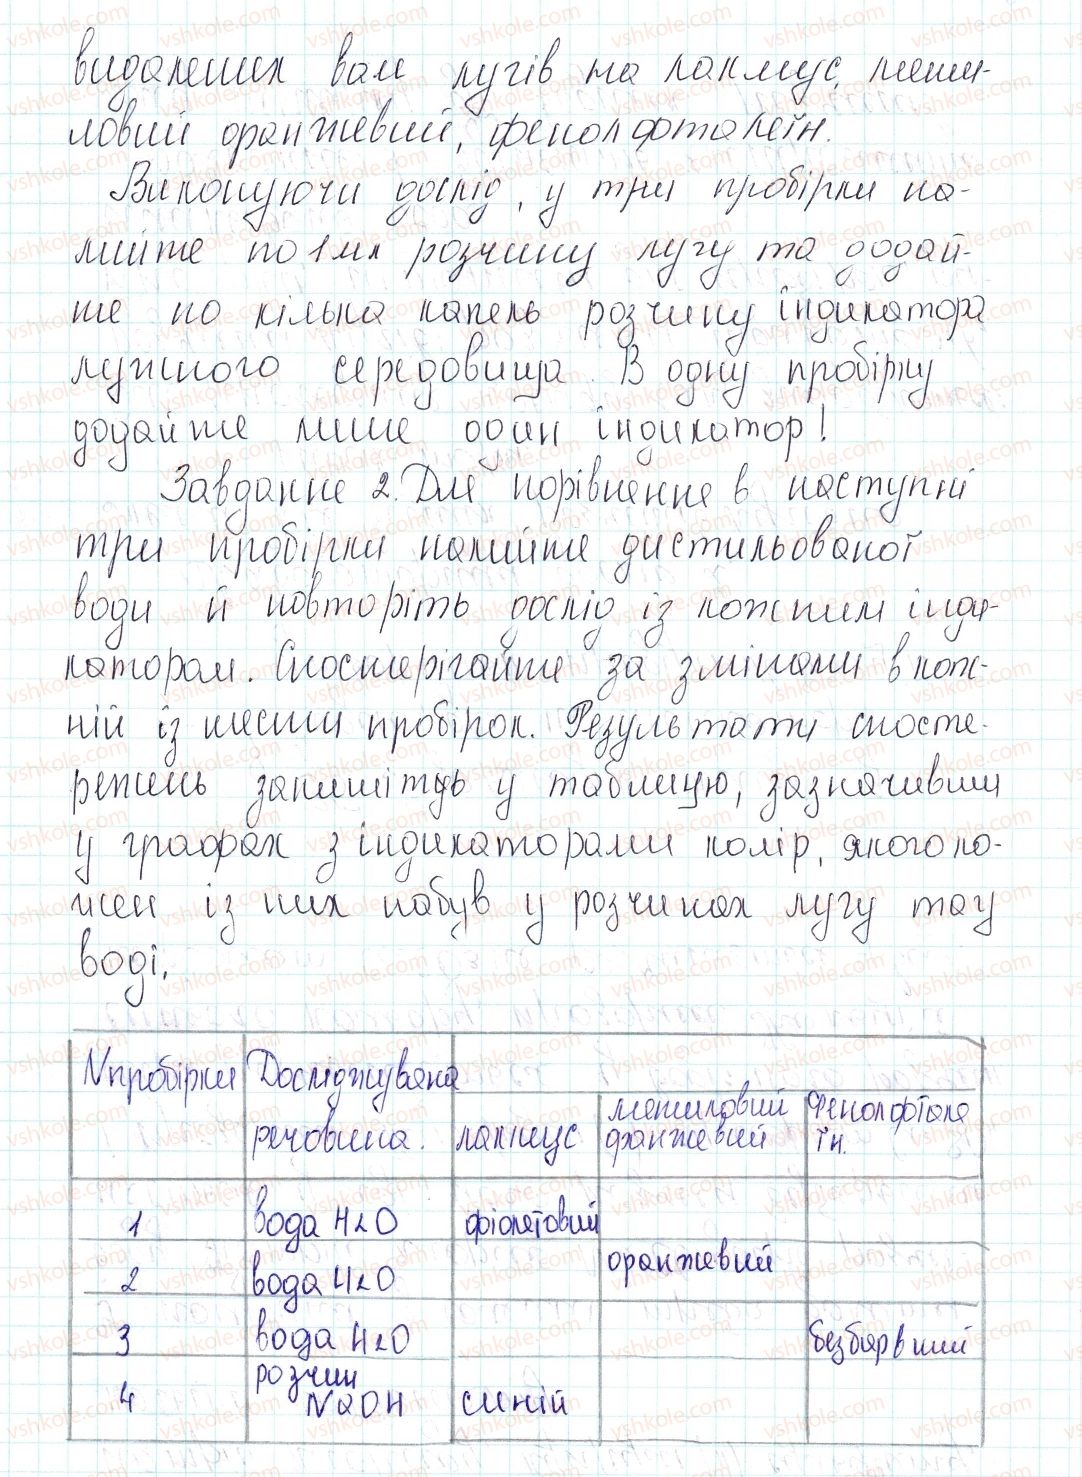 виданених вам лугів на лакмус, мети-
ловий оранжевий, фенолфталеїн.
Виконуючи дослід, у три пробірки на-
лийте по 1 мл розчину лугу та додай-
те по кілька капель розчину індикатора
лужного середовища. В одну пробірку
додайте лише один індикатор!
Завдання 2. Для порівнення в наступні
три пробірки налийте дистильованої
води й повторіть дослід із кожним інди-
катором. Спостерігайте за змінами в кож-
ній із шести пробірок. Результати спосте-
режень запишіть у таблицю, зазначивши
у графах з індикаторами колір, якого ко-
жен із них набув у розчинах лугу та у
воді.
N пробірки Досліджувана
речовина. лакмус метиловий оранжевий Фенолфтале їн.
1 вода H2O фіолетовий
2 вода H2O оранжевий
3 вода H2O безбарвний
4 розчин NaOH синій